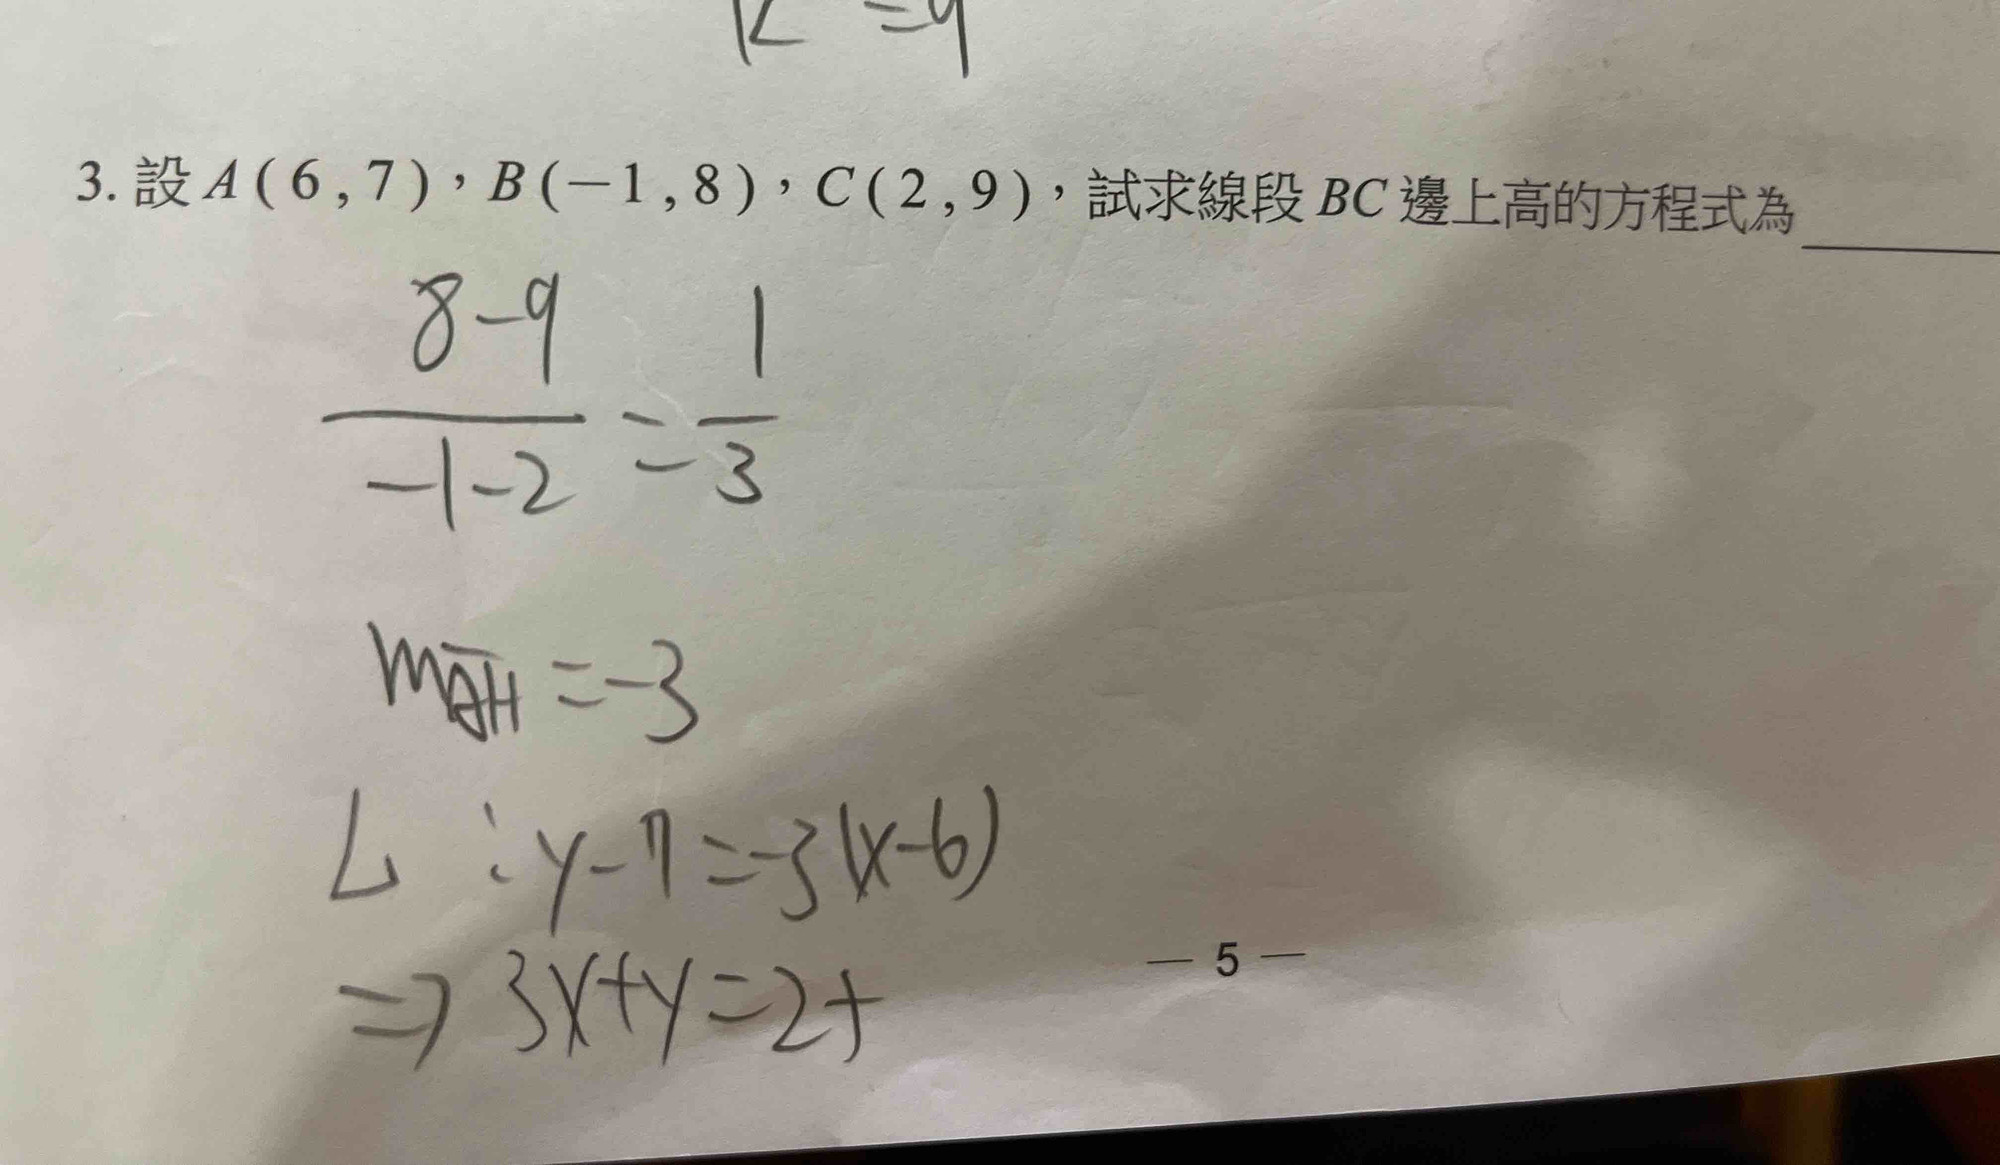 k = 9
3. 設 A ( 6 , 7 )，B (－1 , 8 )，C ( 2 , 9 )，試求線段 BC 邊上高的方程式為
8-9
—— = 1/3
-1-2
m_AH = -3
L : y-7 = -3(x-6)
⇒ 3x+y=25
— 5 —